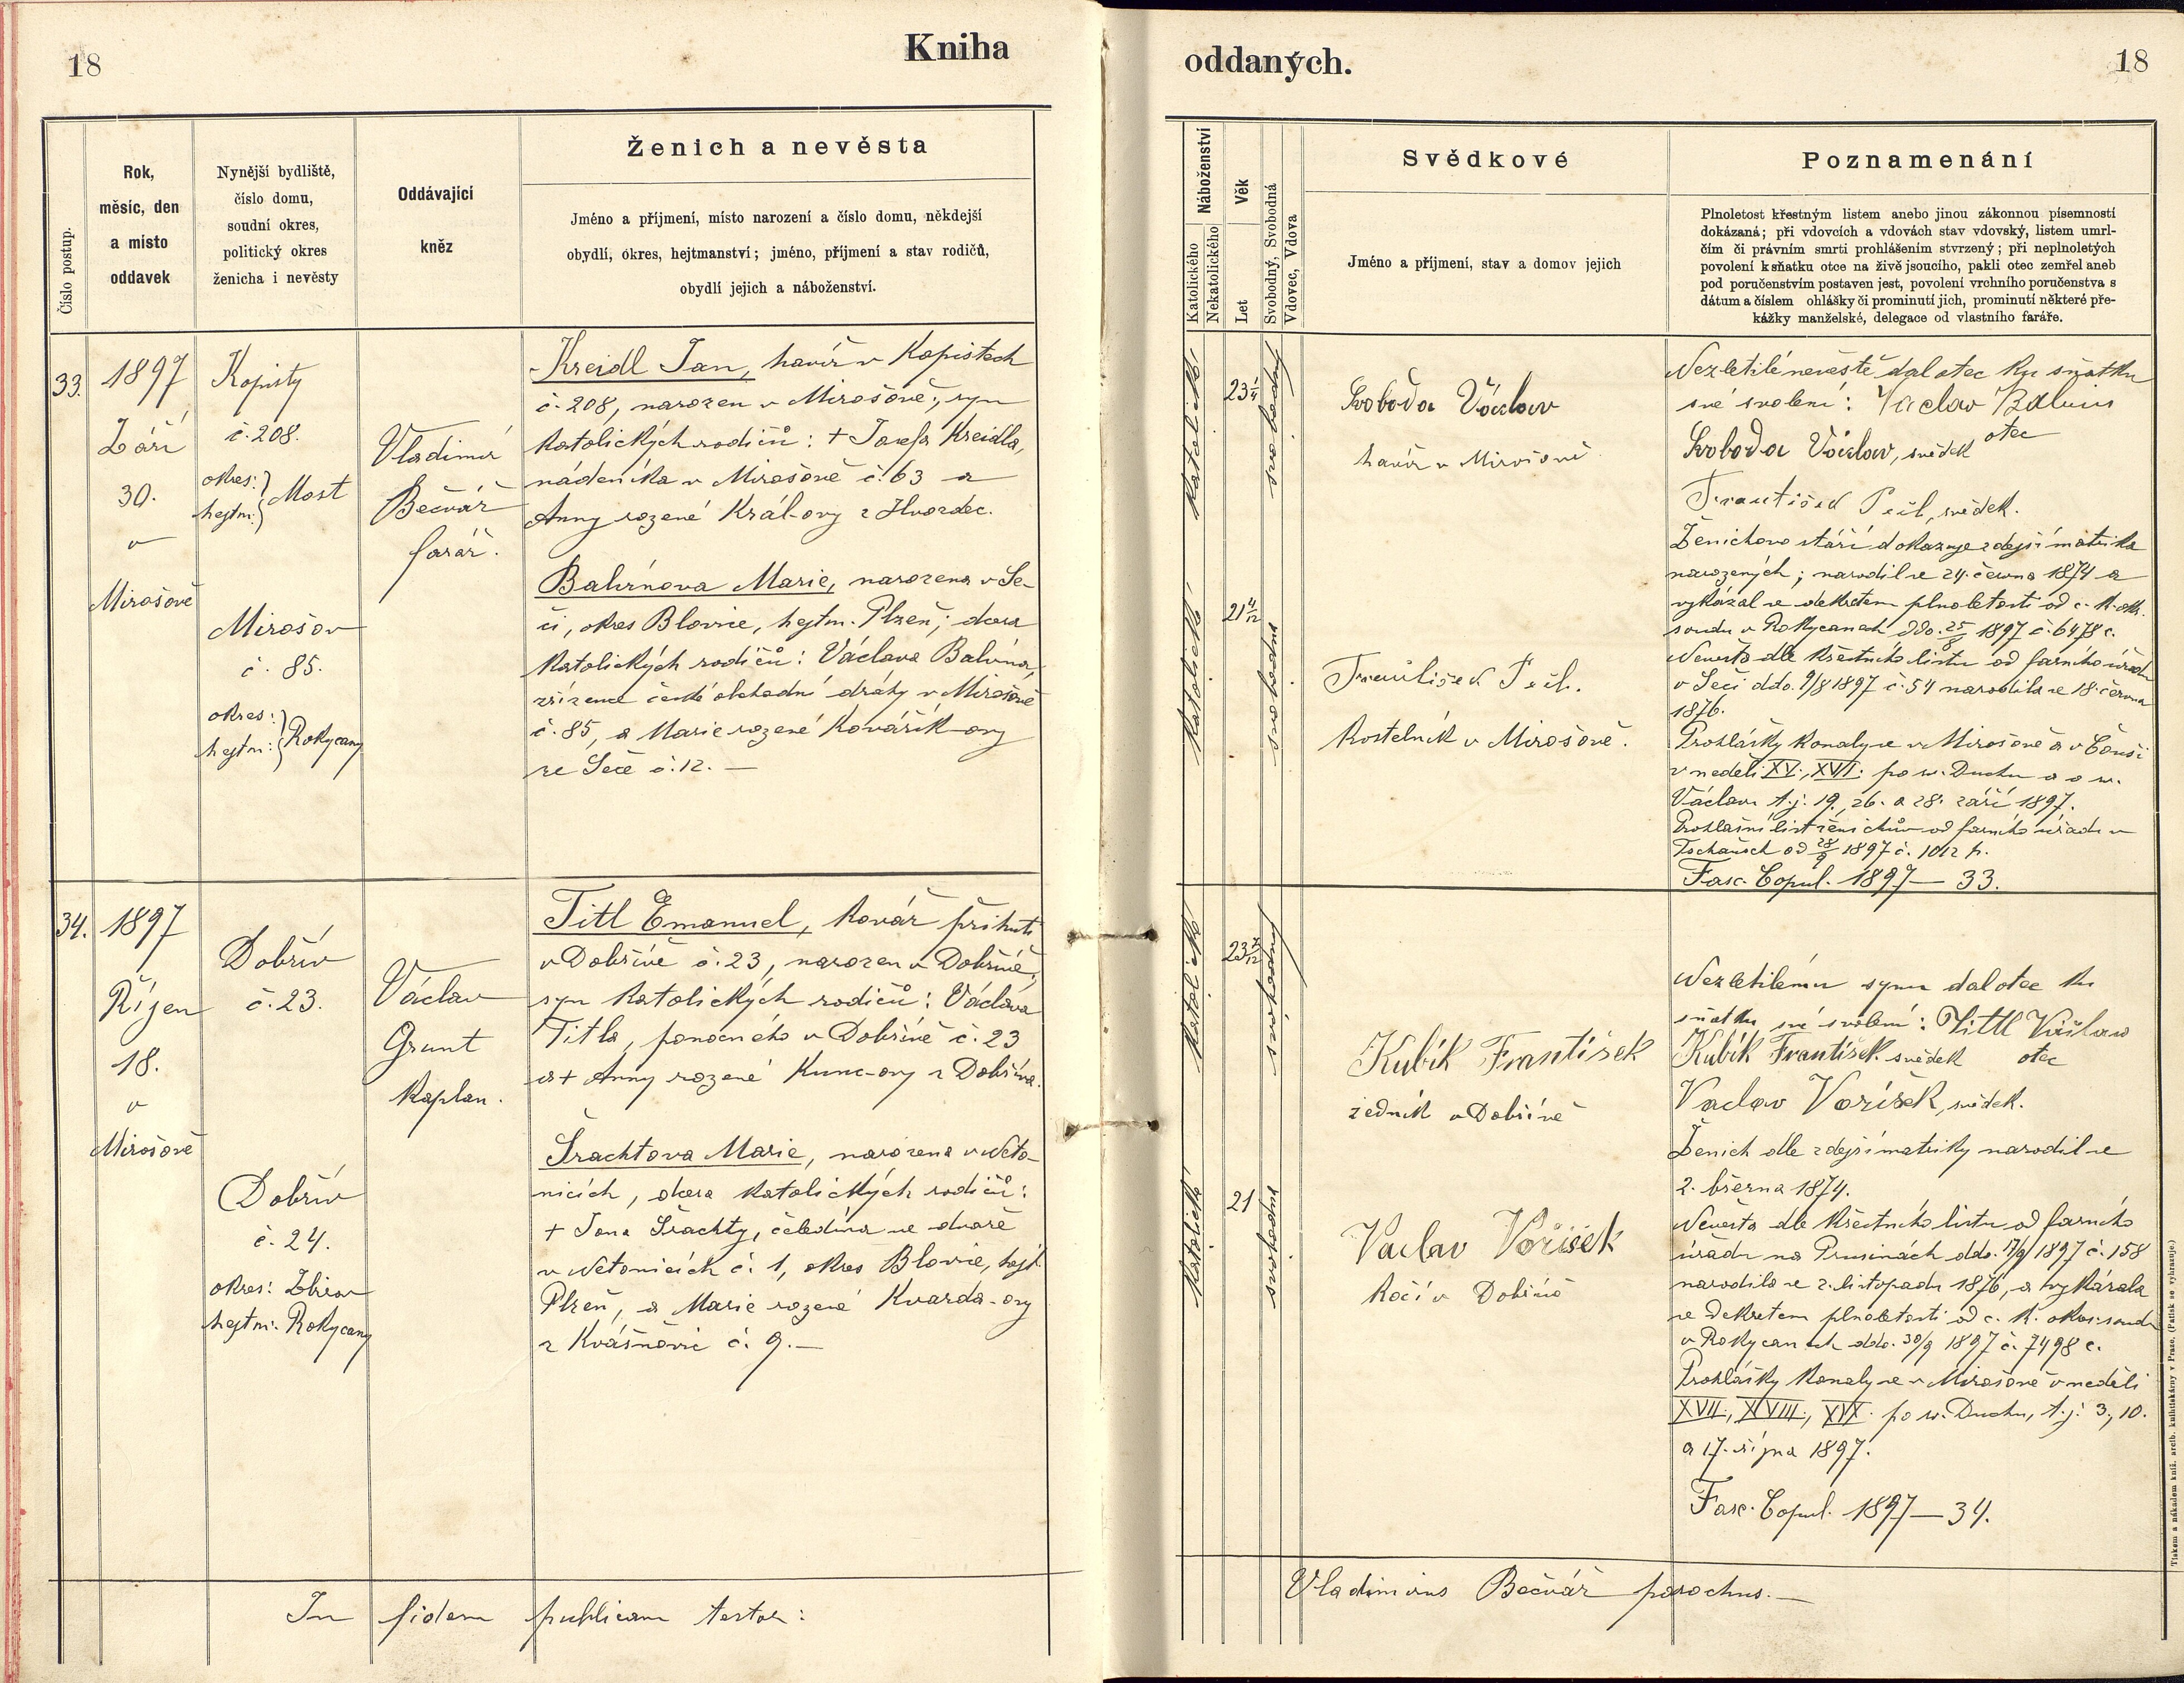 18
Kniha
Číslo postup.
Rok,
měsíc, den
a místo
oddavek
Nynější bydliště,
číslo domu,
soudní okres,
politický okres
ženicha i nevěsty
Oddávající
kněz
Ženich a nevěsta
Jméno a příjmení, místo narození a číslo domu, někdejší
obydlí, okres, hejtmanství; jméno, příjmení a stav rodičů,
obydlí jejich a náboženství.
33.
1897
Září
30.
v
Mirošově
Kopisty
č. 208.
okres:
hejtm: } Most
Mirošov
č. 85.
okres:
hejtm: } Rokycany
Vladimír
Bečvář
farář.
Kreidl Jan, havíř v Kopistech
č. 208, narozen v Mirošově, syn
katolických rodičů: + Josefa Kreidla,
nádeníka v Mirošově č. 63 a
Anny rozené Král-ovy z Hvozdec.
Balvínova Marie, narozena v Se-
či, okres Blovice, hejtm. Plzeň; dcera
katolických rodičů: Václava Balvína,
zřízence české obchodní dráhy v Mirošově
č. 85, a Marie rozené Kovářík-ovy
ze Seče č. 12. —
34.
1897
Říjen
18.
v
Mirošově
Dobřív
č. 23.
Dobřív
č. 24.
okres: Zbirov
hejtm: Rokycany
Václav
Grunt
kaplan.
Titl Emanuel, kovář při huti
v Dobřívě č. 23, narozen v Dobřívě,
syn katolických rodičů: Václava
Titla, ponocného v Dobřívě č. 23
a + Anny rozené Kunc-ovy z Dobříva.
Šrachtova Marie, narozena v Neto-
nicích, dcera katolických rodičů:
+ Jana Šrachty, čeledína ve dvoře
v Netonicích č. 1, okres Blovice, hejt.
Plzeň, a Marie rozené Kvarda-ovy
z Kvášňovic č. 9. —
In fidem publicam testor:
oddaných.
18
Náboženství
Katolického
Nekatolického
Věk
Let
Svobodný, Svobodná
Vdovec, Vdova
Svědkové
Jméno a příjmení, stav a domov jejich
Poznamenání
Plnoletost křestným listem anebo jinou zákonnou písemností
dokázaná; při vdovcích a vdovách stav vdovský, listem umrl-
čím či právním smrti prohlášením stvrzený; při neplnoletých
povolení k sňatku otce na živě jsoucího, pakli otec zemřel aneb
pod poručenstvím postaven jest, povolení vrchního poručenstva s
dátum a číslem ohlášky či prominutí jich, prominutí některé pře-
kážky manželské, delegace od vlastního faráře.
katolické
23 1/4
svobodný
katolické
21 4/12
svobodná
Svoboda Václav
havíř v Mirošově.
František Pech.
kostelník v Mirošově.
Nezletilé nevěstě dal otec ku sňatku
své svolení: Václav Balvín
otec
Svoboda Václav, svědek
František Pech, svědek.
Ženichovo stáří dokazuje zdejší matrika
narozených; narodil se 24. června 1874 a
vykázal se dekretem plnoletosti od c. k. okr.
soudu v Rokycanech ddo. 25/8 1897 č. 6478 c.
Nevěsta dle křestního listu od farního úřadu
v Seči ddo. 9/8 1897 č. 54 narodila se 18. června
1876.
Prohlášky konaly se v Mirošově a v Čouši
v neděli XV., XVI. po sv. Duchu a o sv.
Václavu t. j. 19., 26. a 28. září 1897.
Prohlašní list ženichův od farního úřadu v
Tschausch od 28/9 1897 č. 1012 p.
Fasc. Copul. 1897 — 33.
katolické
23 7/12
svobodný
katolické
21
svobodná
Kubík František
zedník v Dobřívě
Vaclav Voříšek
kočí v Dobřívě
Nezletilému synu dal otec ku
sňatku své svolení: Tittl Václaw
Kubík František svědek otec
Vaclav Voríšek, svědek.
Ženich dle zdejší matriky narodil se
2. března 1874.
Nevěsta dle křestního listu od farního
úřadu na Prusinách ddo. 17/9 1897 č. 158
narodila se 2. listopadu 1876, a vykázala
se dekretem plnoletosti od c. k. okres. soudu
v Rokycanech ddo. 30/9 1897 č. 7498 c.
Prohlášky konaly se v Mirošově v neděli
XVII., XVIII., XIX. po sv. Duchu, t. j. 3., 10.
a 17. října 1897.
Fasc. Copul. 1897 — 34.
Vladimirus Bečvář parochus. —
Tiskem a nákladem kníž. arcib. knihtiskárny v Praze. (Patisk se vyhrazuje.)